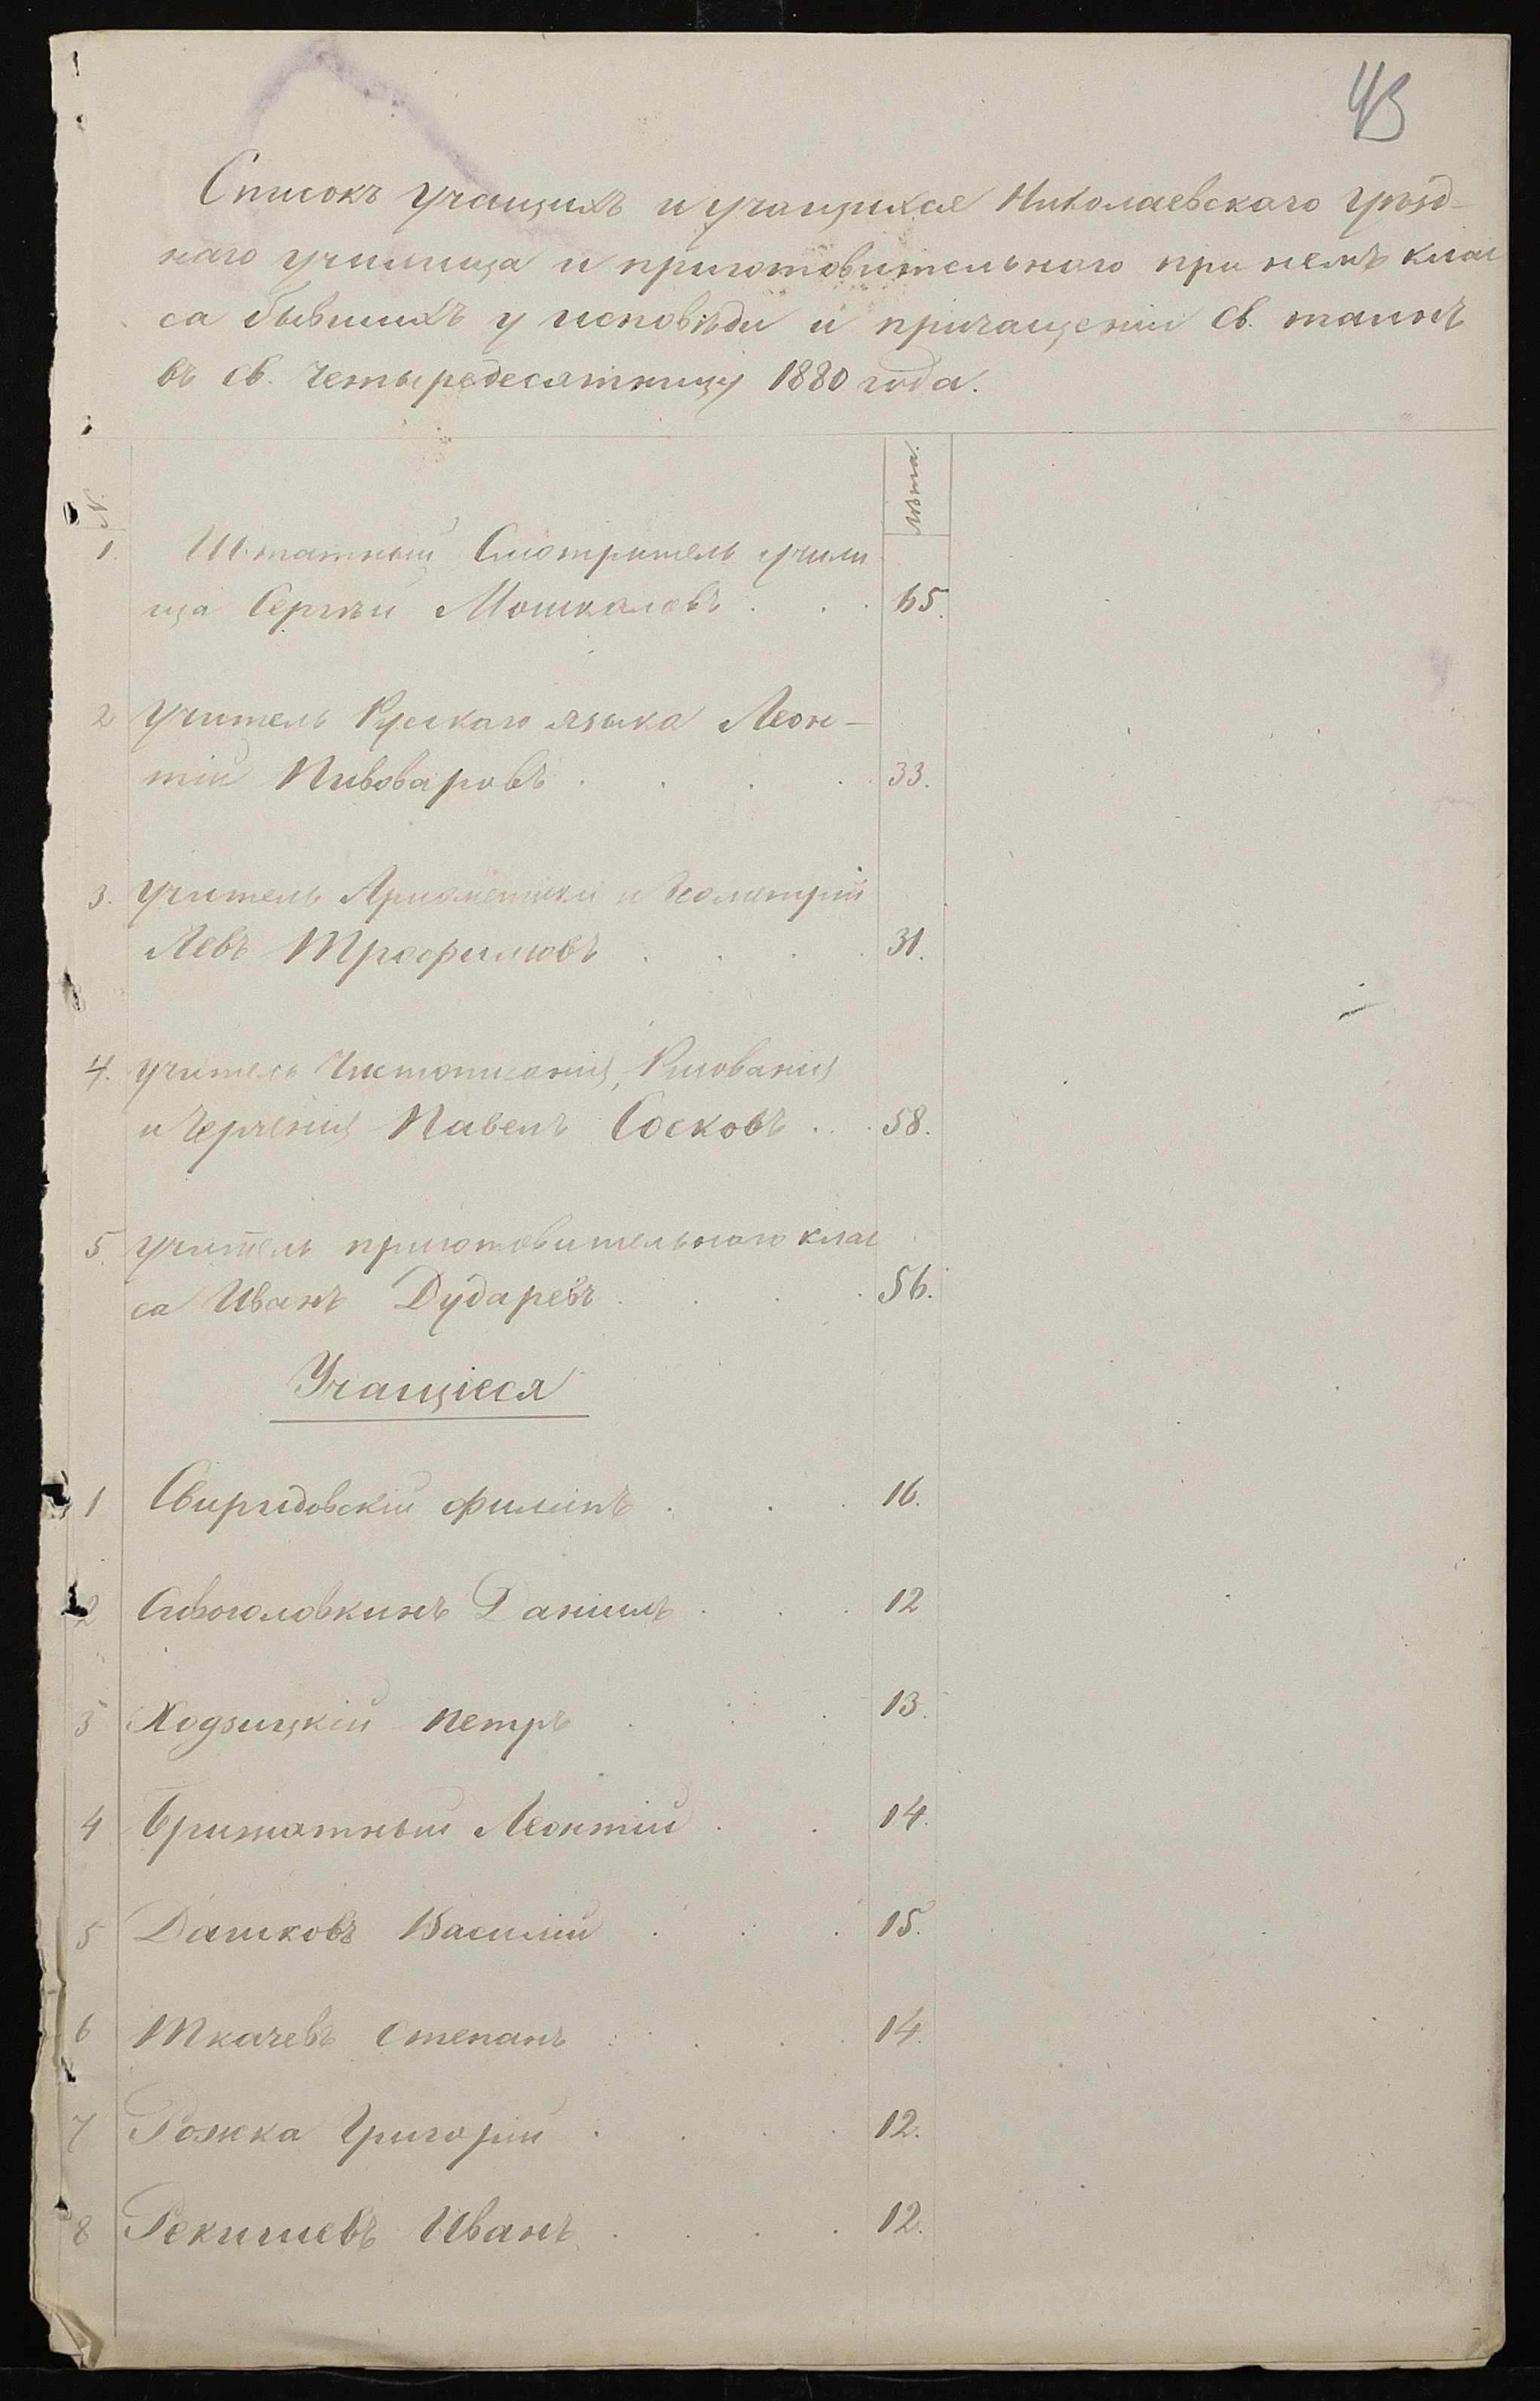 43
Списокъ учащихъ и учащихся Николаевскаго уѣзд-
наго училища и приготовительнаго при немъ клас
са бывшихъ у исповѣди и причащенія Св. таинъ
въ св. четыредесятницу 1880 года.
№
лѣта.
1. Штатный Смотритель учили
ща Сергѣй Мошкаловъ . . . 65.
2 Учитель Русскаго языка Леон-
тій Пивоваровъ . . . . 33.
3. Учитель Ариѳметики и Геометріи
Левъ Трофимовъ . . . . 31.
4. Учитель Чистописанія, Рисованія
и Черченія Павелъ Сосковъ . . . 58.
5. Учитель приготовительнаго клас
са Иванъ Дударевъ . . . . 56.
Учащіеся
1 Свиридовскій Филипъ . . . 16.
2 Сивоголовкинъ Даніилъ . . . 12
3 Ходзицкій Петръ . . . 13.
4 Бришатный Леонтій . . 14.
5 Дашковъ Василій . . . 15.
6 Ткачевъ Степанъ . . . . 14.
7 Рожка Григорій . . . . 12.
8 Рекишевъ Иванъ . . . . 12.